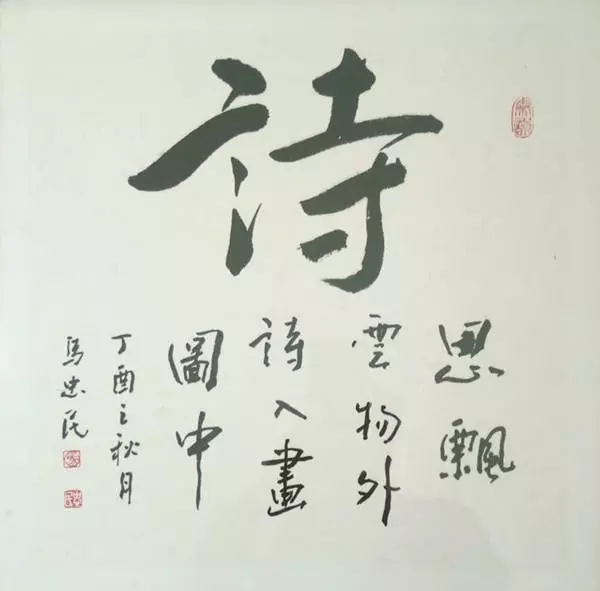 詩
思飄
雲物外
詩入畫
圖中
丁酉之秋月
馬忠民